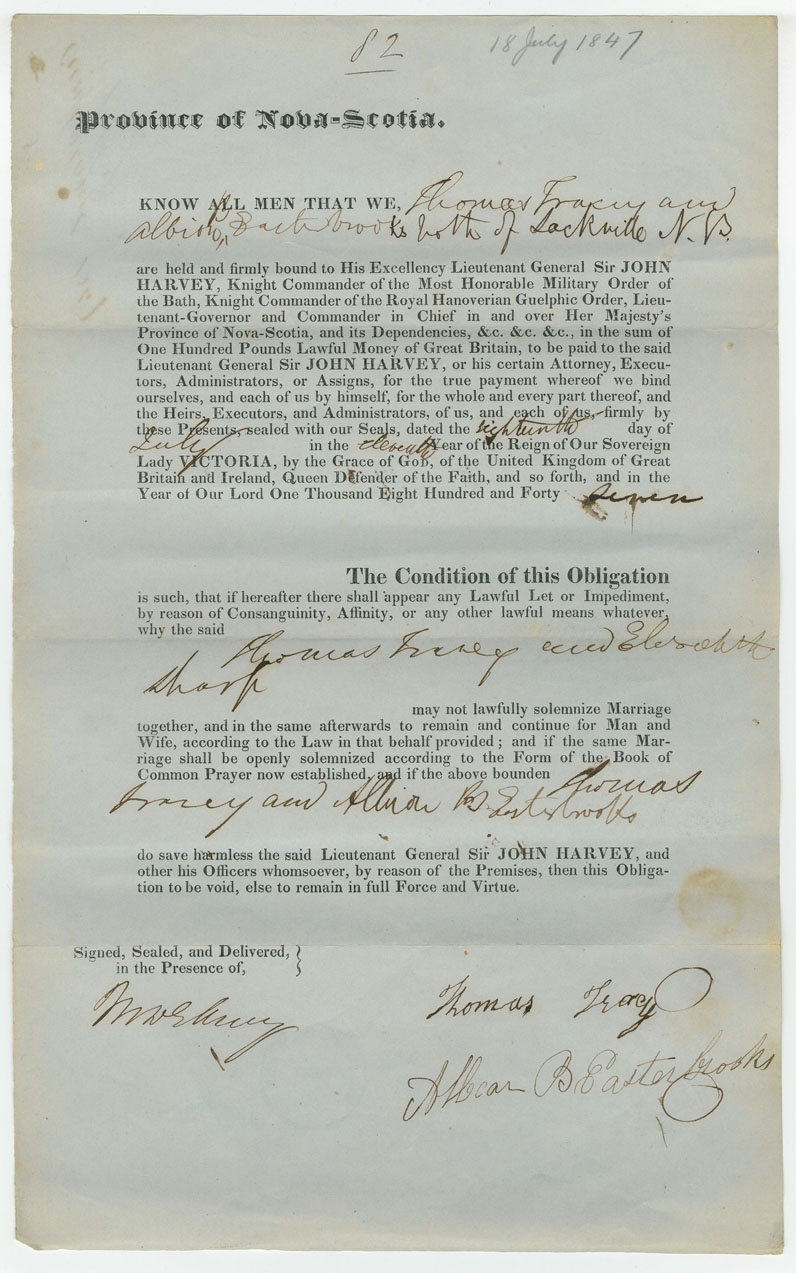 82
18 July 1847
Province of Nova-Scotia.
KNOW ALL MEN THAT WE, Thomas Tracey and
Albion B. Easterbrooks both of Sackville N.B.
are held and firmly bound to His Excellency Lieutenant General Sir JOHN
HARVEY, Knight Commander of the Most Honorable Military Order of
the Bath, Knight Commander of the Royal Hanoverian Guelphic Order, Lieu-
tenant-Governor and Commander in Chief in and over Her Majesty's
Province of Nova-Scotia, and its Dependencies, &c. &c. &c., in the sum of
One Hundred Pounds Lawful Money of Great Britain, to be paid to the said
Lieutenant General Sir JOHN HARVEY, or his certain Attorney, Execu-
tors, Administrators, or Assigns, for the true payment whereof we bind
ourselves, and each of us by himself, for the whole and every part thereof, and
the Heirs, Executors, and Administrators, of us, and each of us, firmly by
these Presents, sealed with our Seals, dated the eighteenth day of
July in the eleventh Year of the Reign of Our Sovereign
Lady VICTORIA, by the Grace of GOD, of the United Kingdom of Great
Britain and Ireland, Queen Defender of the Faith, and so forth, and in the
Year of Our Lord One Thousand Eight Hundred and Forty seven
The Condition of this Obligation
is such, that if hereafter there shall appear any Lawful Let or Impediment,
by reason of Consanguinity, Affinity, or any other lawful means whatever,
why the said
Thomas Tracey and Elizabeth
Sharp
may not lawfully solemnize Marriage
together, and in the same afterwards to remain and continue for Man and
Wife, according to the Law in that behalf provided; and if the same Mar-
riage shall be openly solemnized according to the Form of the Book of
Common Prayer now established, and if the above bounden Thomas
Tracey and Albion B Easterbrooks
do save harmless the said Lieutenant General Sir JOHN HARVEY, and
other his Officers whomsoever, by reason of the Premises, then this Obliga-
tion to be void, else to remain in full Force and Virtue.
Signed, Sealed, and Delivered,
in the Presence of,
Thomas Tracy
B Easterbrooks